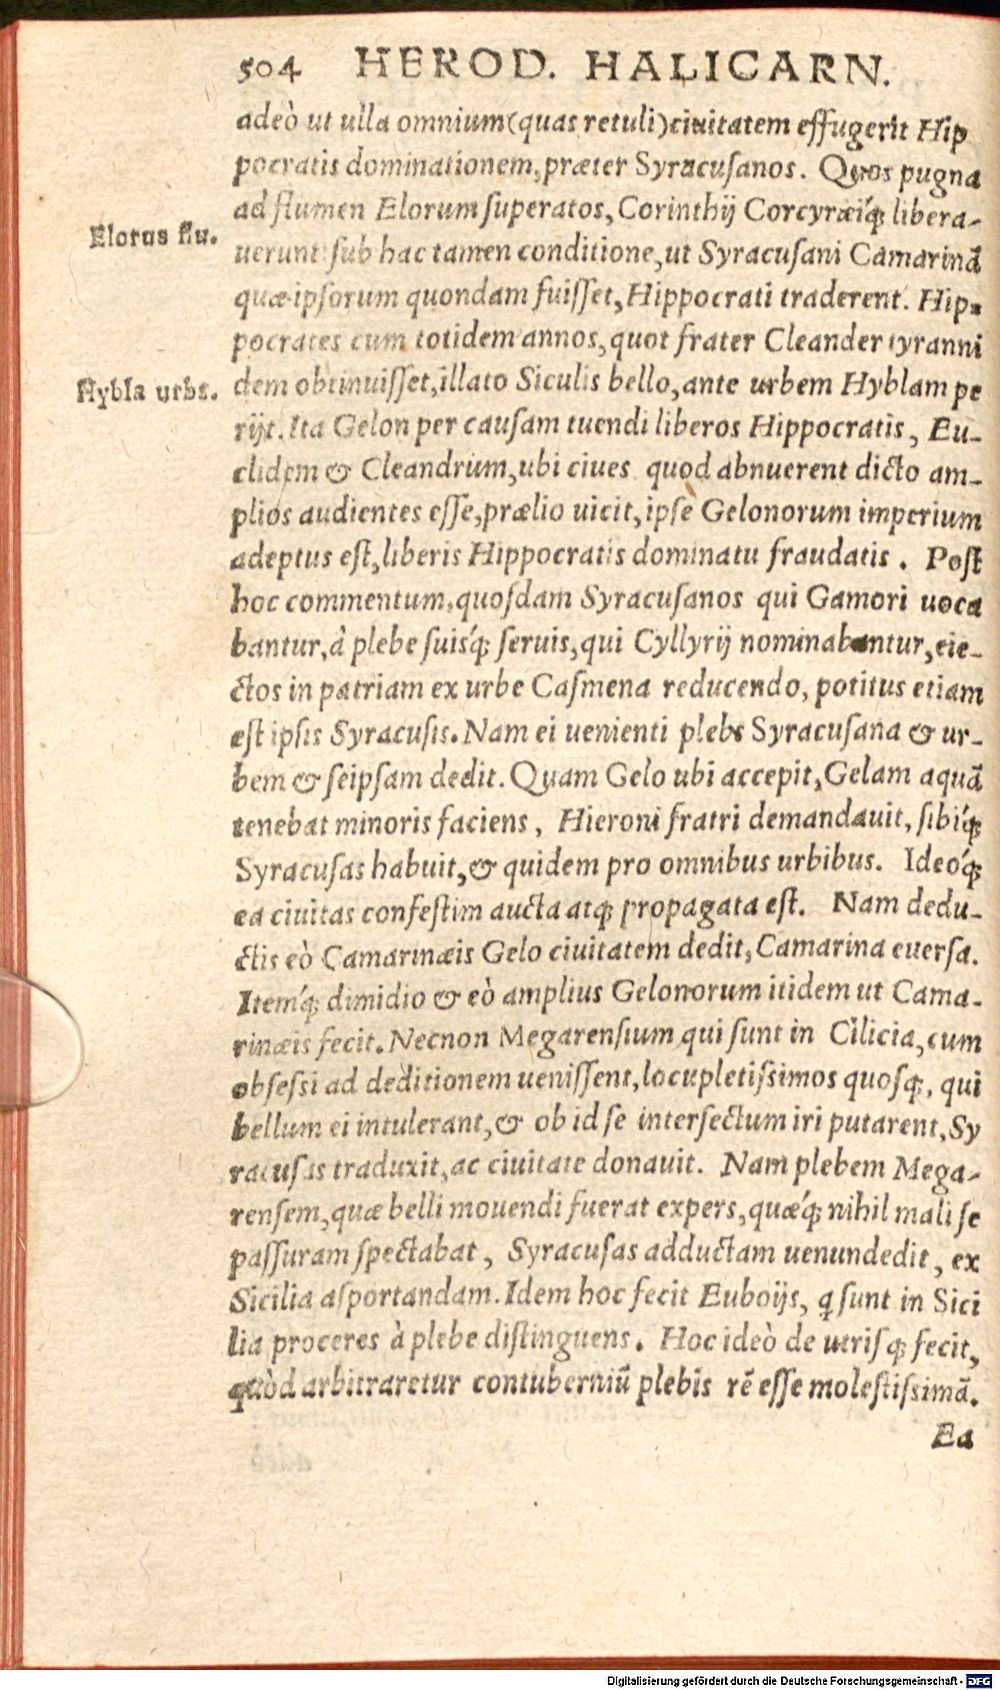 504 HEROD. HALICARN.
adeò ut ulla omnium (quas retuli) ciuitatem effugerit Hip
pocratis dominationem, præter Syracusanos. Quos pugna
ad flumen Elorum superatos, Corinthij Corcyræiq́; libera-
Elorus flu.
uerunt sub hac tamen conditione, ut Syracusani Camarinā
quæ ipsorum quondam fuisset, Hippocrati traderent. Hip-
pocrates cum totidem annos, quot frater Cleander tyranni
Hybla urbs.
dem obtinuisset, illato Siculis bello, ante urbem Hyblam pe
rijt. Ita Gelon per causam tuendi liberos Hippocratis, Eu-
clidem & Cleandrum, ubi ciues quod abnuerent dicto am-
plios audientes esse, prælio uicit, ipse Gelonorum imperium
adeptus est, liberis Hippocratis dominatu fraudatis. Post
hoc commentum, quosdam Syracusanos qui Gamori uoca
bantur, à plebe suisq́; seruis, qui Cyllyrij nominabantur, eie-
ctos in patriam ex urbe Casmena reducendo, potitus etiam
est ipsis Syracusis. Nam ei uenienti plebs Syracusana & ur-
bem & seipsam dedit. Quam Gelo ubi accepit, Gelam aquā
tenebat minoris faciens, Hieroni fratri demandauit, sibiq́;
Syracusas habuit, & quidem pro omnibus urbibus. Ideoq́;
ea ciuitas confestim aucta atq; propagata est. Nam dedu-
ctis eò Camarinæis Gelo ciuitatem dedit, Camarina euersa.
Itemq́; dimidio & eò amplius Gelonorum itidem ut Cama-
rinæis fecit. Necnon Megarensium qui sunt in Cilicia, cum
obsessi ad deditionem uenissent, locupletissimos quosq;, qui
bellum ei intulerant, & ob id se intersectum iri putarent, Sy
racusas traduxit, ac ciuitate donauit. Nam plebem Mega-
rensem, quæ belli mouendi fuerat expers, quæq́; nihil mali se
passuram spectabat, Syracusas adductam uenundedit, ex
Sicilia asportandam. Idem hoc fecit Euboijs, q̨ sunt in Sici
lia proceres à plebe distinguens. Hoc ideò de utrisq; fecit,
quòd arbitraretur contuberniū plebis rē esse molestissimā.
Ea
Digitalisierung gefördert durch die Deutsche Forschungsgemeinschaft - DFG